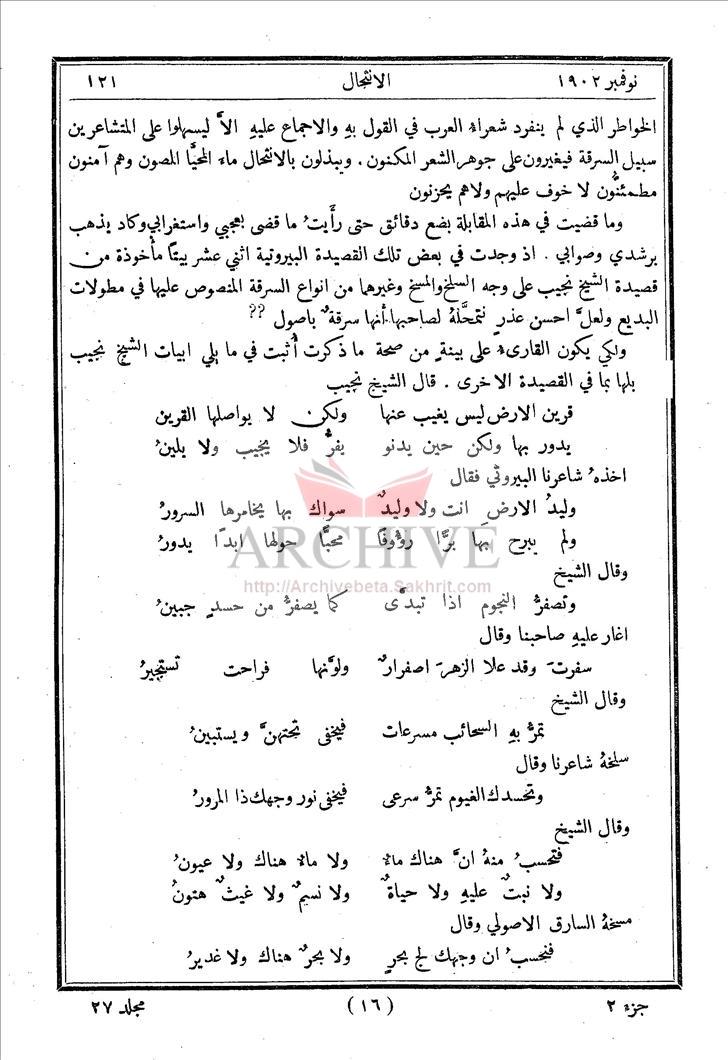 نوفمبر ١٩٠٢ الانتحال ١٢١
الخواطر الذي لم ينفرد شعراءُ العرب في القول بهِ والاجماع عليهِ الاَّ ليسهلوا على المتشاعرين
سبيل السرقة فيغيرون على جوهر الشعر المكنون . ويبذلون بالانتحال ماء المحيَّا المصون وهم آمنون
مطمئنُّون لا خوف عليهم ولا هم يحزنون
وما قضيت في هذه المقابلة بضع دقائق حتى رأَيتُ ما قضى بعجبي واستغرابي وكاد يذهب
برشدي وصوابي . اذ وجدت في بعض تلك القصيدة البيروتية اثني عشر بيتًا مأخوذة من
قصيدة الشيخ نجيب على وجه السلخ والمسخ وغيرهما من انواع السرقة المنصوص عليها في مطولات
البديع ولعلَّ احسن عذرٍ نتمحَّلهُ لصاحبها أنها سرقةٌ باصول ??
ولكي يكون القارىءُ على بينةٍ من صحة ما ذكرت أُثبت في ما يلي ابيات الشيخ نجيب
يلها بما في القصيدة الاخرى . قال الشيخ نجيب
قرين الارض ليس يغيب عنها ولكن لا يواصلها القرين
يدور بها ولكن حين يدنو يفرُّ فلا يجيب ولا يلينُ
اخذهُ شاعرنا البيروتي فقال
وليدُ الارض انت ولا وليدٌ سواك بها يخامرها السرورُ
ولم يبرح بها برًّا رؤُوفًا محبًّا حولها ابدًا يدورُ
ARCHIVE
http://Archivebeta.Sakhrit.com
وقال الشيخ
وتصفرُّ النجوم اذا تبدَّى كما يصفرُّ من حسدٍ جبينُ
اغار عليهِ صاحبنا وقال
سفرتَ وقد علا الزهرَ اصفرارٌ ولوَّنها فراحت تستجيرُ
وقال الشيخ
تمرُّ بهِ السحائب مسرعات فيخفى تحتهنَّ ويستبينُ
سلخهُ شاعرنا وقال
وتحسدك الغيوم تمرُّ سرعى فيخفى نور وجهك ذا المرورُ
وقال الشيخ
فتحسبُ منهُ انَّ هناك ماءً ولا ماءٌ هناك ولا عيونُ
ولا نبتٌ عليهِ ولا حياةٌ ولا نسيمٌ ولا غيثٌ هتونُ
مسخهُ السارق الاصولي وقال
فنحسبُ ان وجهك لج بحرٍ ولا بحرٌ هناك ولا غديرُ
جزء ٢ (١٦) مجلد ٢٧